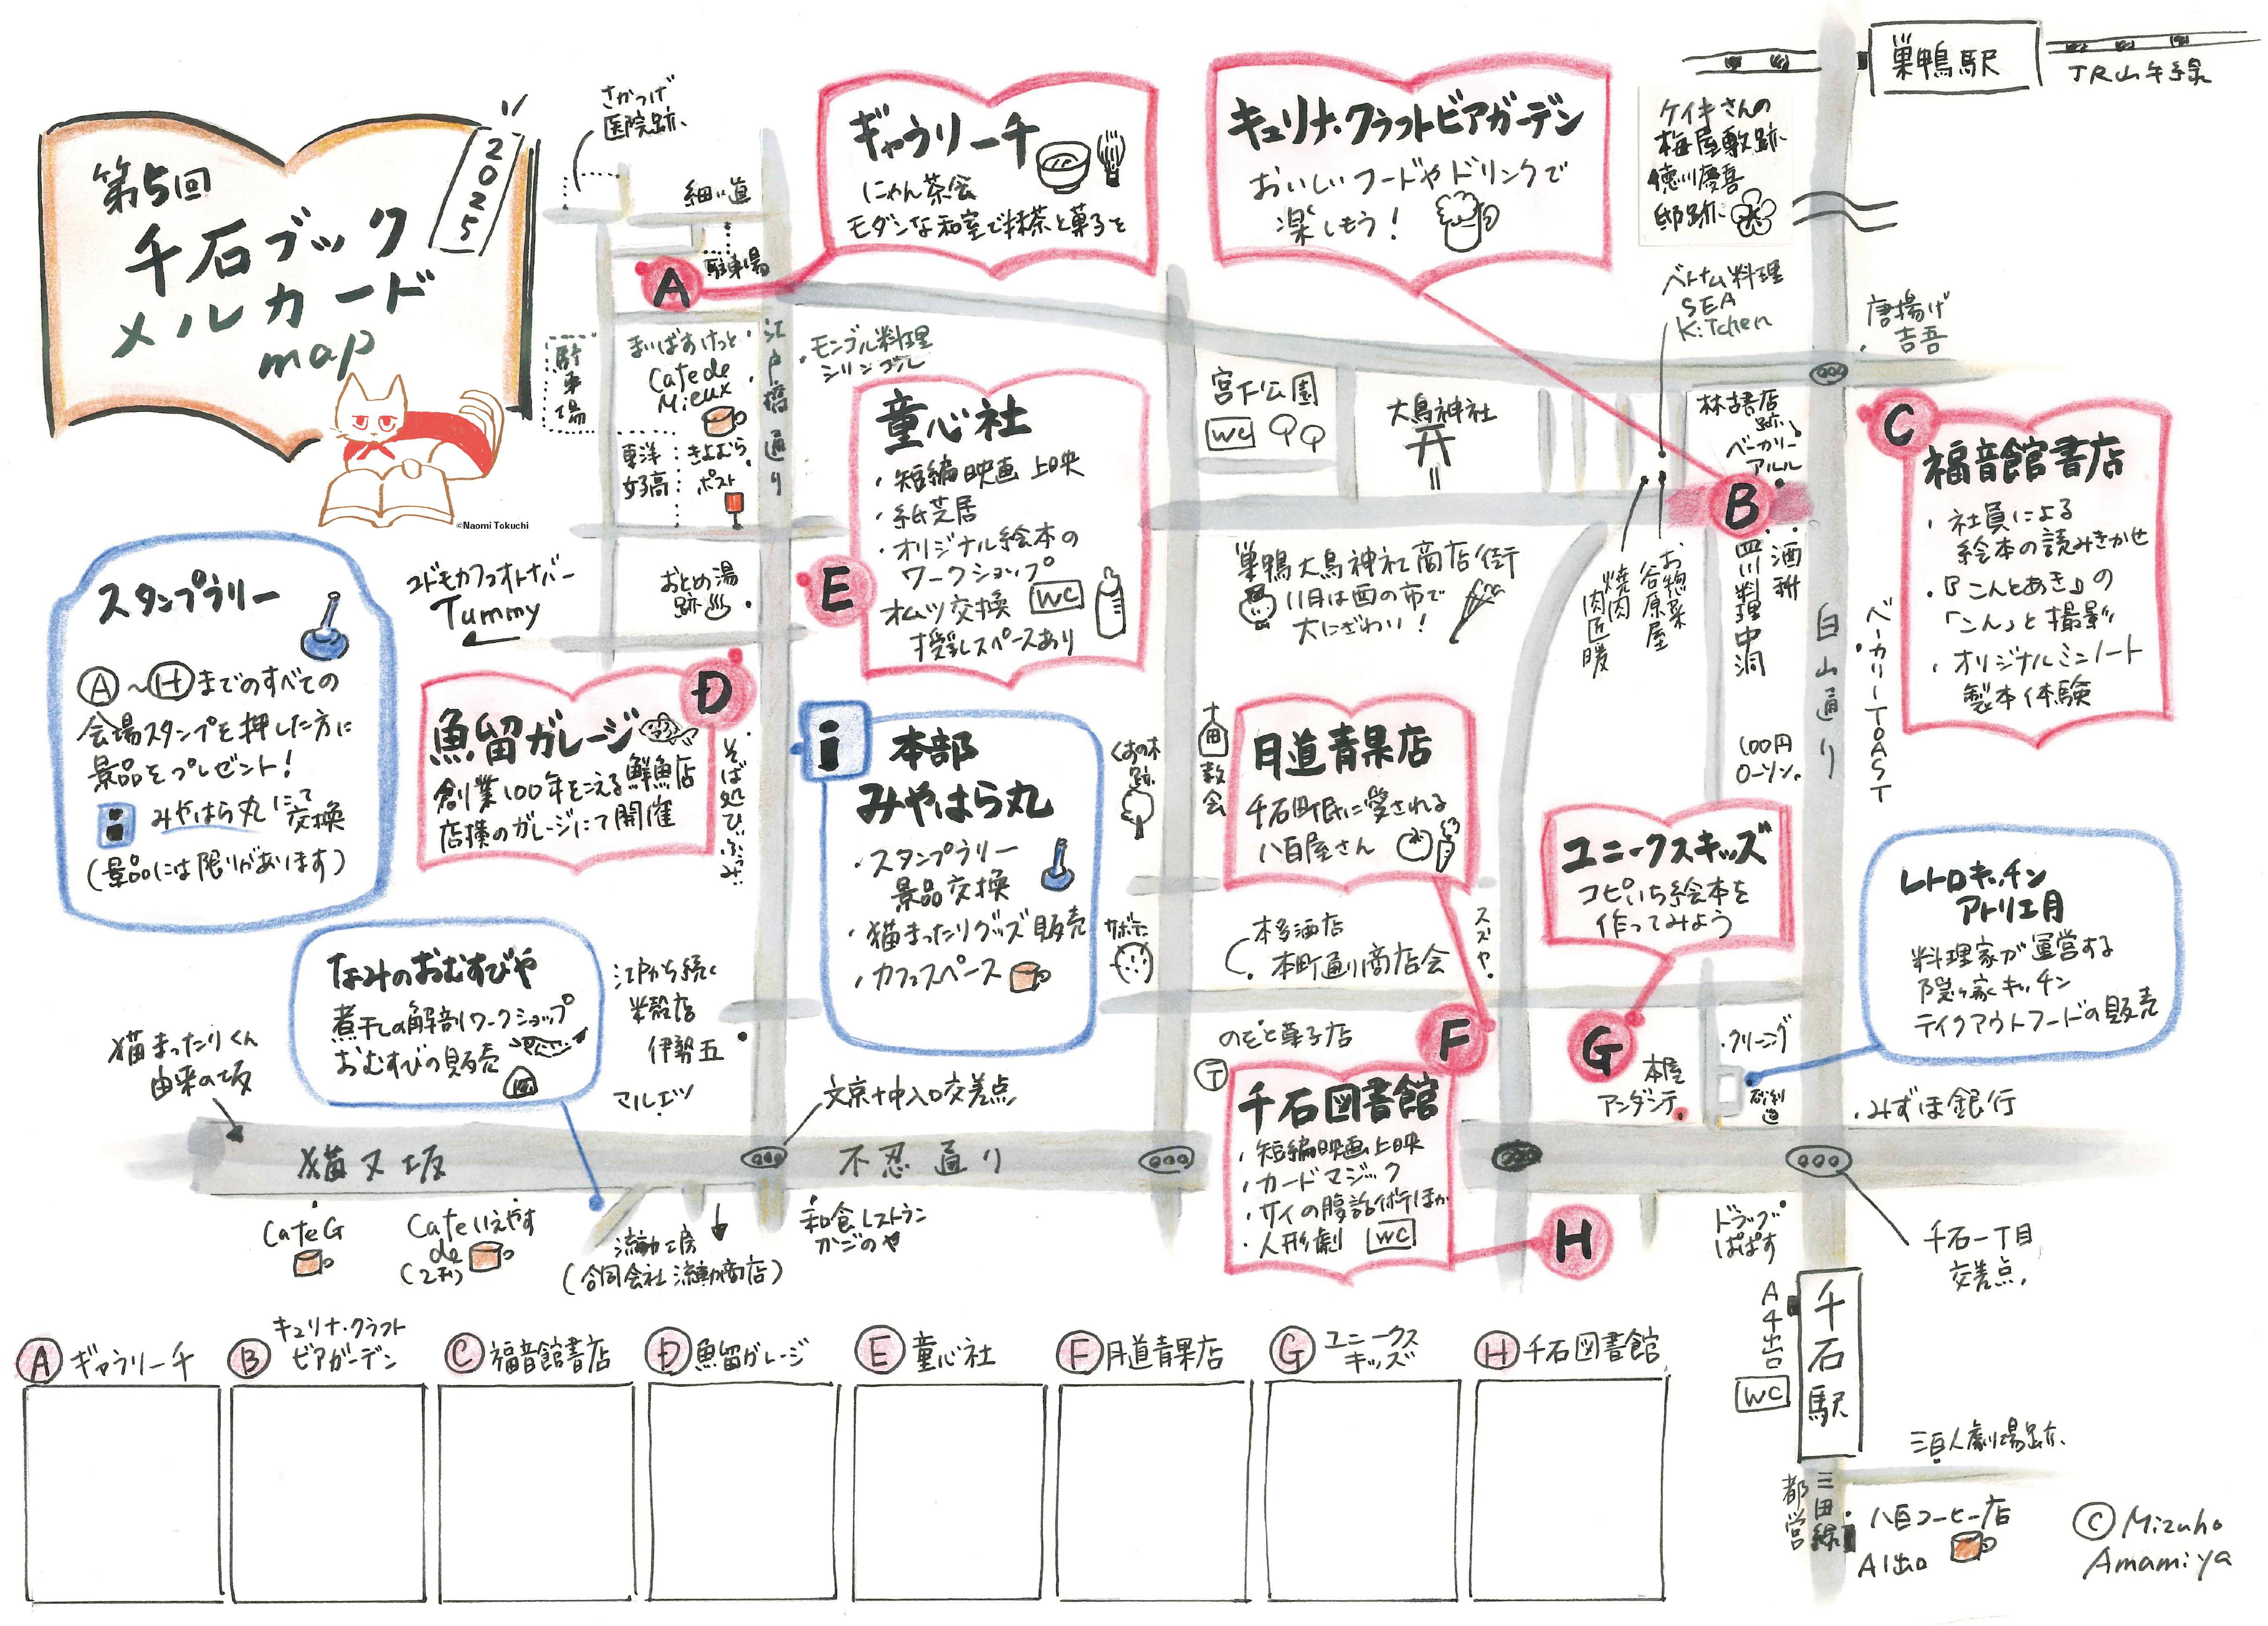 第5回
2025
千石ブック
メルカード
map
©Naomi Tokuchi
さかつげ
医院跡
細い道
駐車場
A
ギャラリー千
にゃん茶会
モダンな和室で抹茶と菓子を
キュリナ・クラフトビアガーデン
おいしいフードやドリンクで
楽しもう!
巣鴨駅
JR山手線
ケイキさんの
梅屋敷跡
徳川慶喜
邸跡
ベトナム料理
SEA
Kitchen
唐揚げ
吉吾
駐車場
まいばすけっと
Cafe de
Mieux
江戸橋通り
モンゴル料理
シリンゴル
東洋
女子高
きよむら
ポスト
E
童心社
・短編映画上映
・紙芝居
・オリジナル絵本の
ワークショップ
オムツ交換 WC
授乳スペースあり
宮下公園
WC
大鳥神社
林古書店
跡
ベーカリー
アルル
B
C
福音館書店
・社員による
絵本の読みきかせ
・『こんとあき』の
「こん」と撮影
・オリジナルミニノート
製本体験
巣鴨大鳥神社商店街
11月は酉の市で
大にぎわい!
焼肉
肉匠暖
お惣菜
谷原屋
四川料理中洞
酒耕
白山通り
ベーカリーTOAST
100円
ローソン
スタンプラリー
Ⓐ~Ⓗまでのすべての
会場スタンプを押した方に
景品をプレゼント!
i みやはら丸にて
交換
(景品には限りがあります)
コドモカフェオトナバー
Tummy
おとめ湯
跡
D
魚留ガレージ
創業100年をこえる鮮魚店
店横のガレージにて開催
そば処ひぶみ
i
本部
みやはら丸
・スタンプラリー
景品交換
・猫まったりグッズ販売
・カフェスペース
くすの木
跡
サボテン
教会
月道青果店
千石町民に愛される
八百屋さん
本多酒店
本町通り商店会
スズヤ
ユニークスキッズ
コピいち絵本を
作ってみよう
レトロキッチン
アトリエ月
料理家が運営する
隠れ家キッチン
テイクアウトフードの販売
なみのおむすびや
煮干しの解剖ワークショップ
おむすびの販売
江戸から続く
米穀店
伊勢五
マルエツ
猫まったりくん
由来の坂
文京十中入口交差点
のぞと菓子店
〒
F
G
本屋
アンダンテ
・クリーニング
・みずほ銀行
千石図書館
・短編映画上映
・カードマジック
・サイの腹話術ほか
・人形劇 WC
H
猫又坂
不忍通り
Cafe G
Cafeいえやす
de
(2F)
流動工房
(合同会社流動商店)
和食レストラン
かごのや
ドラッグ
ぱぱす
千石一丁目
交差点
A4出口
WC
千石駅
三百人劇場跡
都営
三田線
八百コーヒー店
A1出口
© Mizuho
Amamiya
Ⓐ ギャラリー千
Ⓑ キュリナ・クラフト
ビアガーデン
Ⓒ 福音館書店
Ⓓ 魚留ガレージ
Ⓔ 童心社
Ⓕ 月道青果店
Ⓖ ユニークス
キッズ
Ⓗ 千石図書館